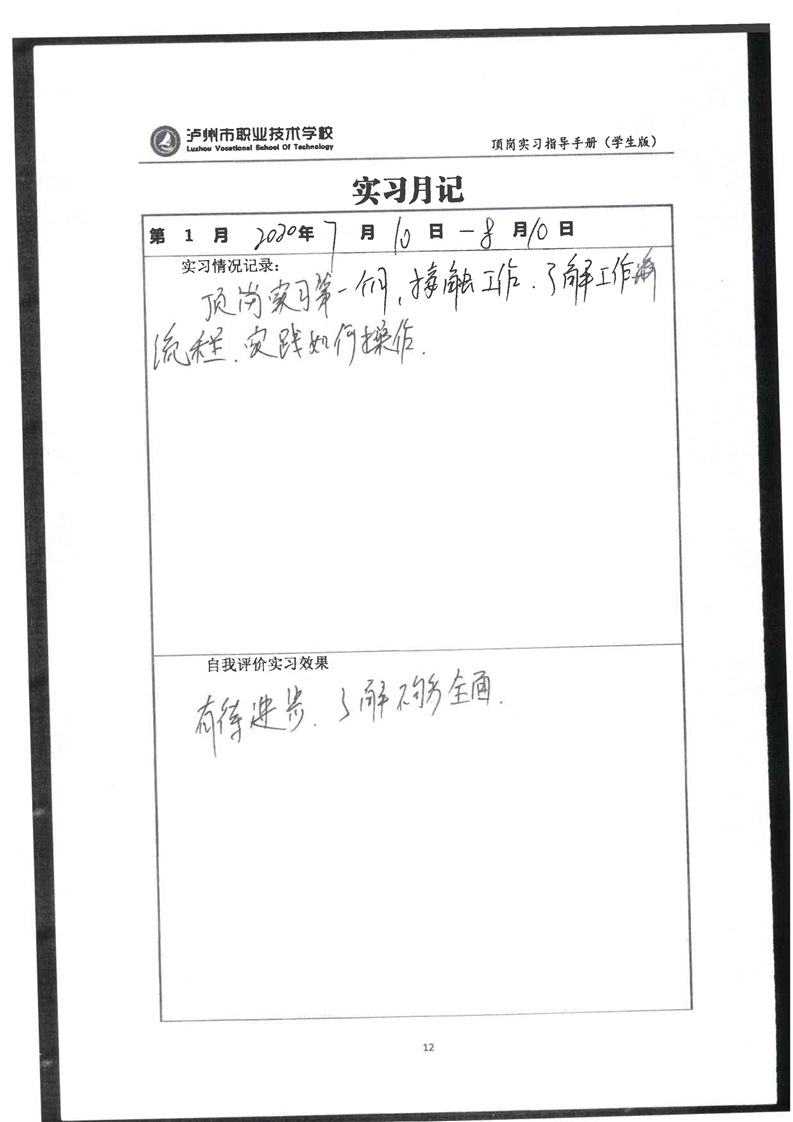 泸州市职业技术学校
Luzhou Vocational School Of Technology
顶岗实习指导手册（学生版）
实习月记
第 1 月 2020年7月10日－8月10日
实习情况记录：
顶岗实习第一个月，接触工作、了解工作
流程、实践如何操作.
自我评价实习效果
有待进步、了解不够全面.
12